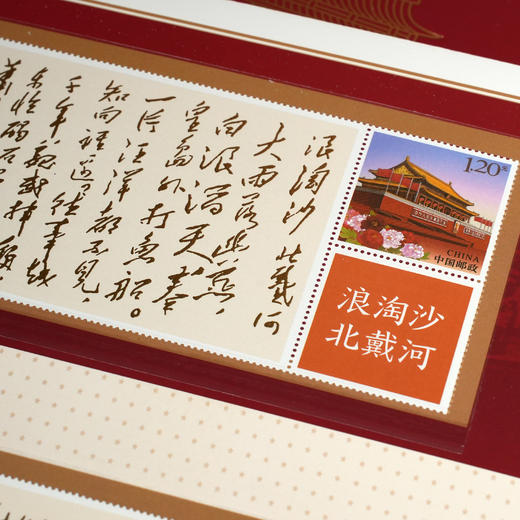 浪淘沙 北戴河
大雨落幽燕，
白浪滔天 秦
皇島外打魚船。
一片汪洋都不見，
知向誰邊？往事越
千年 魏武揮鞭
東臨碣石
1.20元
CHINA
中国邮政
浪淘沙
北戴河